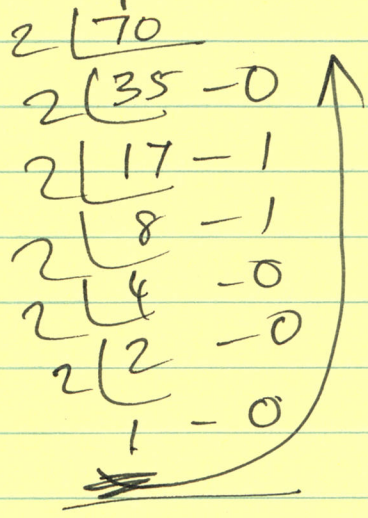 2 70
2 35 - 0
2 17 - 1
2 8 - 1
2 4 - 0
2 2 - 0
1 - 0